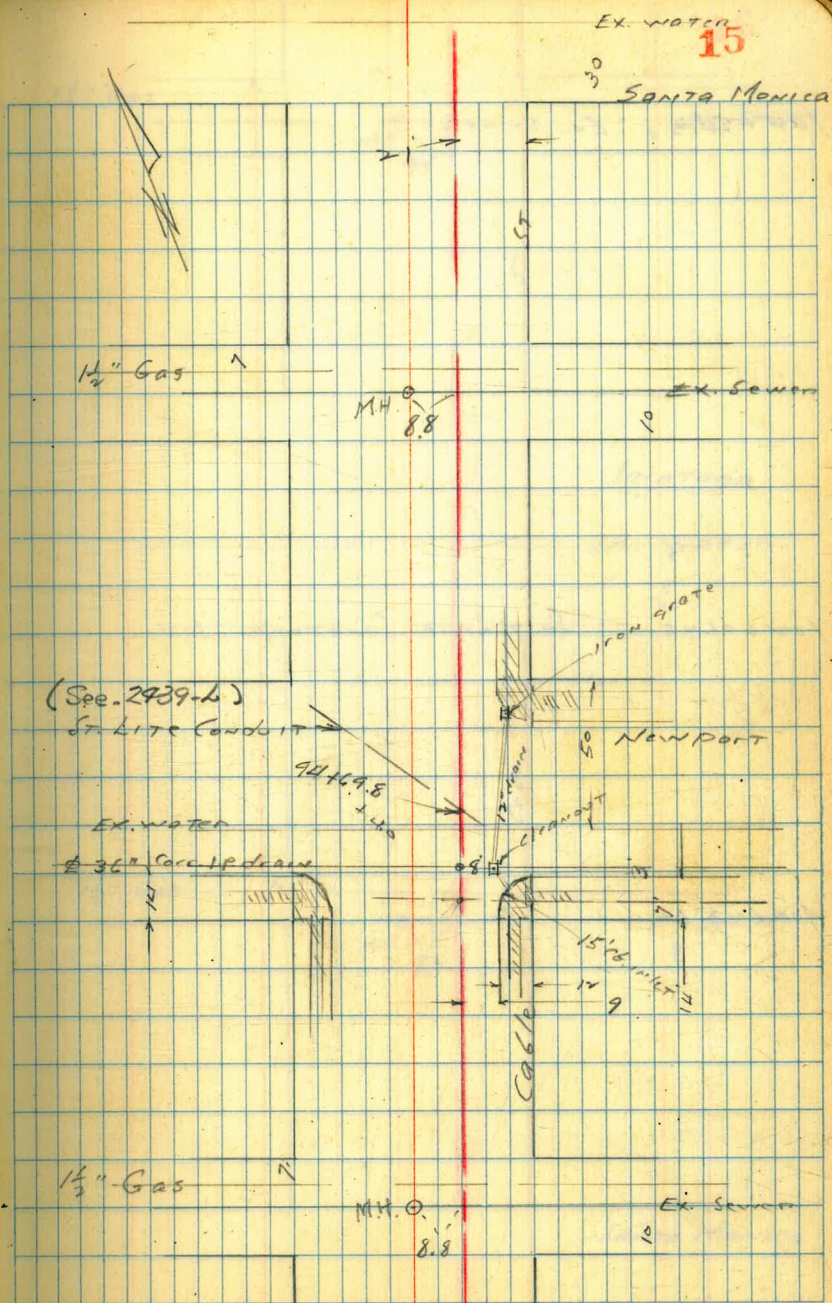 Ex. water
15
30
Santa Monica
21
55
1½" Gas 7
M.H.
8.8
Ex. Sewer
10
Iron grate
(See-2439-L)
St. Lite Conduit
50
Newport
94+69.8
12" drain
Cleanout
Ex. water
36" conc. drain
8'
3
14
7'
15' inlet
12
9
14
Cable
1½" Gas
7
M.H.
8.8
Ex. Sewer
10